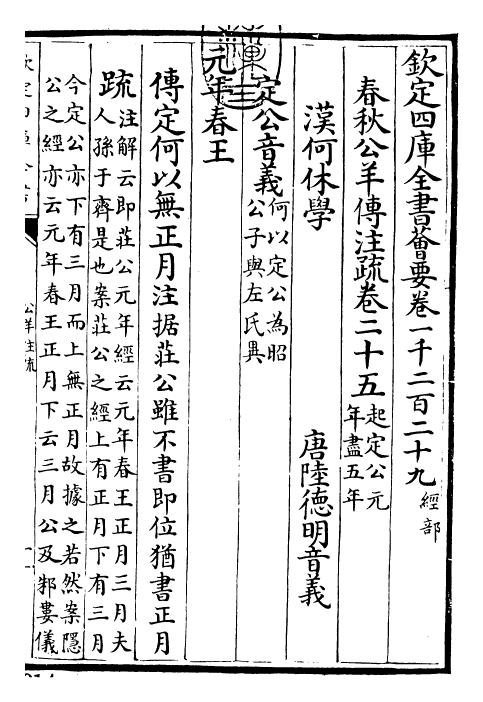 欽定四庫全書薈要卷一千二百二十九 經部
春秋公羊傳注疏卷二十五 起定公元
年盡五年
漢何休學 唐陸德明音義
定公音義 何以定公為昭
公子與左氏異
元年春王
傳定何以無正月注据莊公雖不書即位猶書正月
疏 注解云即莊公元年經云元年春王正月三月夫
人孫于齊是也案莊公之經上有正月下有三月
今定公亦下有三月而上無正月故據之若然案隱
公之經亦云元年春王正月下云三月公及邾婁儀
公羊注疏